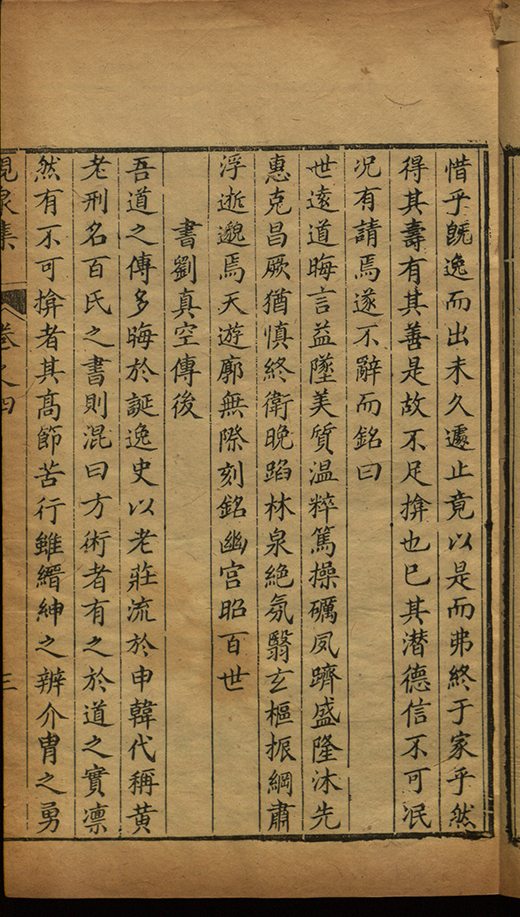 惜乎旣逸而出未久遽止竟以是而弗終于家乎然
得其壽有其善是故不足揜也已其潜德信不可泯
况有請焉遂不辭而銘曰
世逺道晦言益墜美質温粹篤操礪夙躋盛隆沐先
惠克昌厥猶慎終衛晚蹈林泉絶氛翳玄樞振綱肅
浮逝邈焉天遊廓無際刻銘幽宫昭百世
書劉真空傳後
吾道之傳多晦於誕逸史以老莊流於申韓代稱黄
老刑名百氏之書則混曰方術者有之於道之實凛
然有不可揜者其髙節苦行雖縉紳之辨介胄之勇
峴泉集
卷之四
三